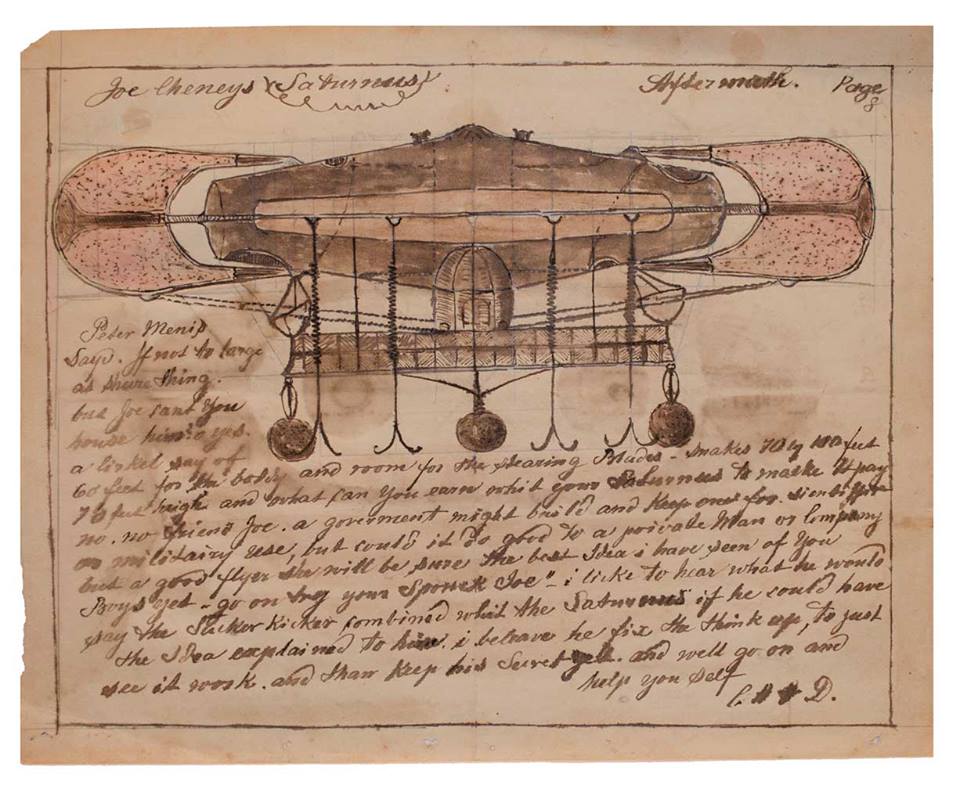 Joe Cheneys (Saturnus)
Aftermath. Page 8
Peter Menis
Says. If not to large
as shure thing.
but Joe cant you
house him. o yes.
a lickel say of
60 feet for the body and room for the stearing Blades - makes 70 by 100 feet
70 feet high and what can you earn whit your Saturnus to maake it pay
no. no friend Joe. a goverment might build and Keep one for sientiffic
or militairy use, but could it do good to a privat Man or Company
but a good flyer she will be, sure the best Idea i have seen of You
Boys yet - go on try your Joe" - i licke to hear what he would
say the Slicker Kicker combined whit the Saturnus if he could have
the Idea explained to him. i beleave he fix the think up, to just
see it work. and than Keep his Secret yett. and well go on and
help you self
D.